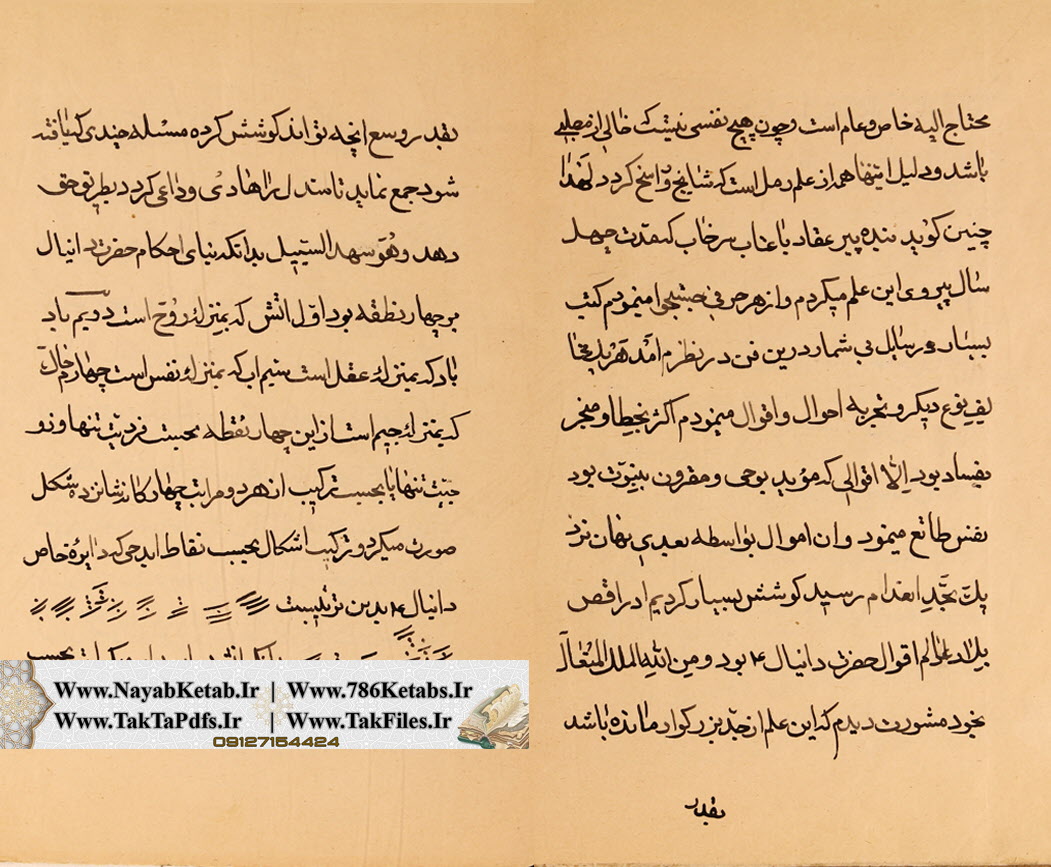 محتاج الیه خاص و عام است و چون هیچ نفسی نیست که خالی از مطلبی
باشد و دلیل اینها همه از علم رمل است که شایع و راسخ کردد لهذا
چنین کوید بنده پیر عقاد با عناب سرخاب که مدت چهل
سال پیروی این علم میکردم و از هر حرفی جستجوی مینمودم کتب
بسیار و رسایل بی شمار درین فن در نظرم آمد هر یک بنحا
لف نوع دیکر و تجربه احوال و اقوال مینمودم اکثر بخطا و منجر
بفساد بود الا اقوالی که موید بوحی و مقرون بنبوت بود
نفس طالع مینمود و ان اموال بواسطه بعدی زمان نزد
یک بحد انعدام رسید کوشش بسیار کردیم در اقص
بلاد عالم اقوال حضرت دانیال ۴ بود و من الله الملک المتعال
بخود مشورت دیدم که این علم از جد بزرکوار مانده باشد
بقدر
بقدر وسع انچه تواند کوشش کرده مسئله چندی که یافته
شود جمع نماید تا مستدل را هادی و داعی کردد بطریق حق
دهد و هو سهد السبیل بدانکه بنای احکام حضرت دانیال
بر چهار نطقه بود اول اتش که بمنزله روح است دویم باد
باد که بمنزله عقل است سیم اب که بمنزله نفس است چهارم خاک
که بمنزله جیم است از این چهار نقطه بحسب فردیت تنها و زو
جیت تنها یا بحسب ترکیب از هر دو مراتب چهار کانه شانزده شکل
صورت میکرد و ترکیب اشکال بحسب نقاط ابدحی که دایره خاص
دانیال ۴ بدین ترتیبست
Www.NayabKetab.Ir | Www.786Ketabs.Ir
Www.TakTaPdfs.Ir | Www.TakFiles.Ir
09127154424